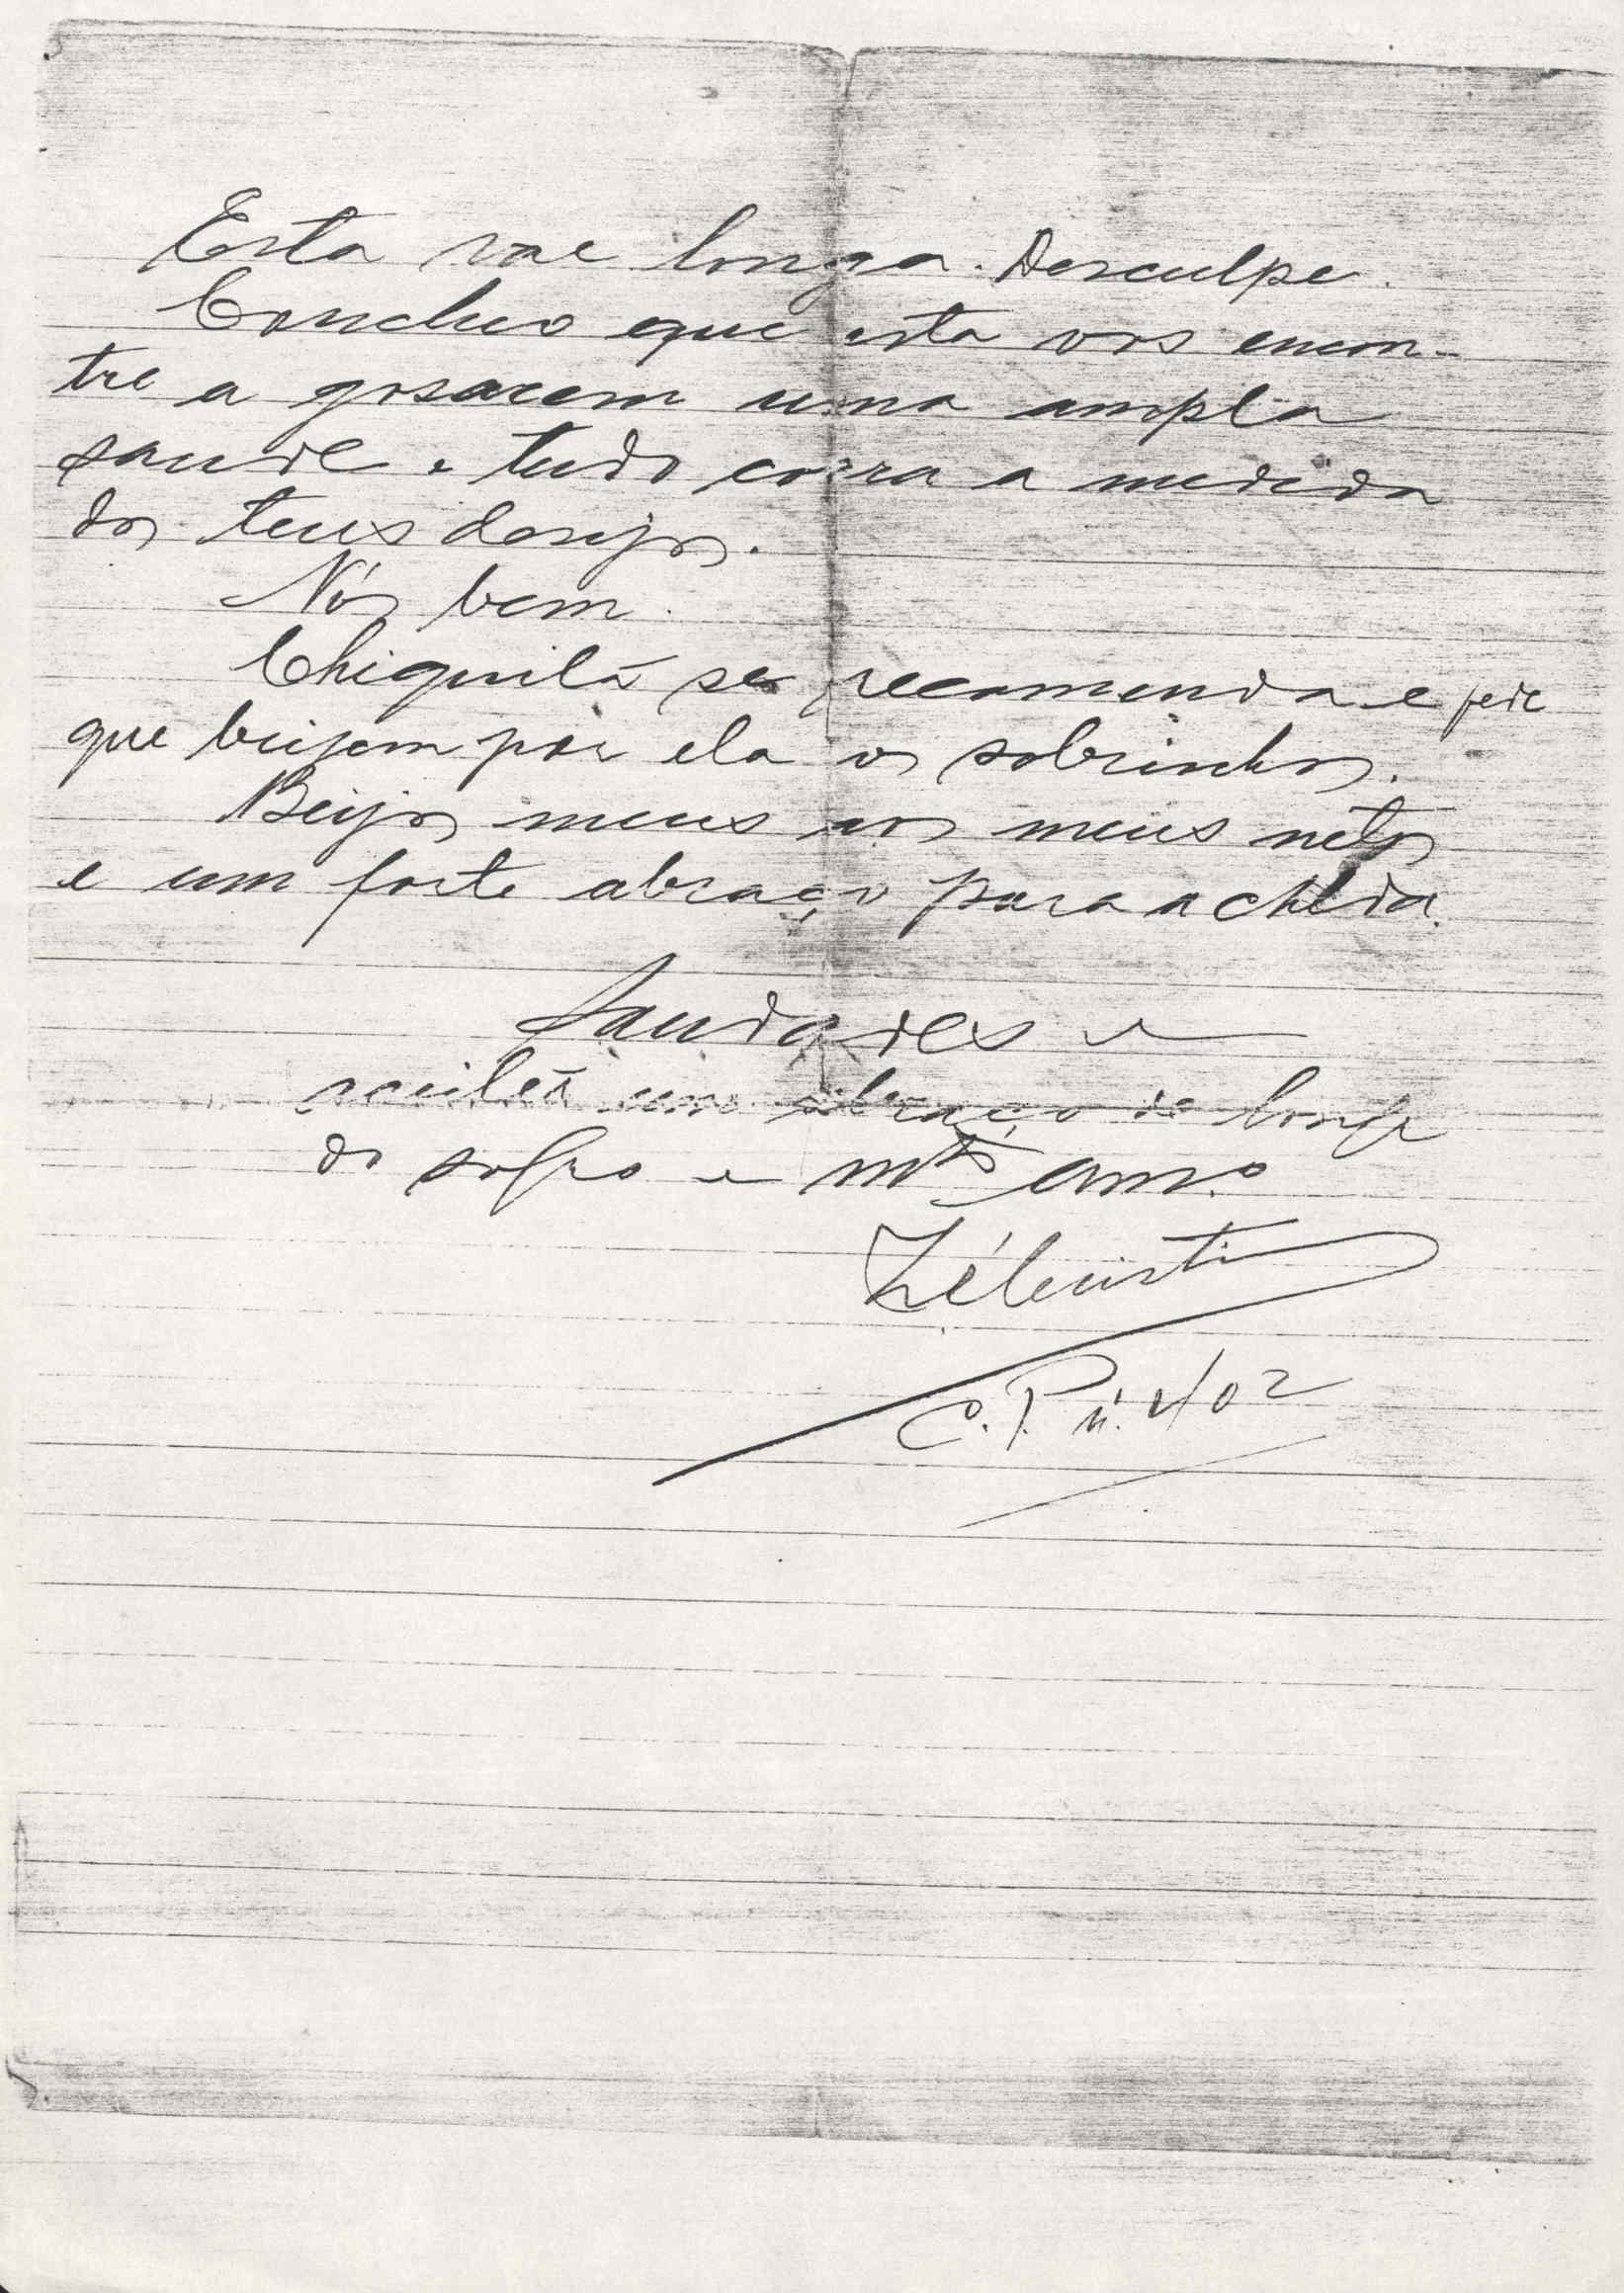 Esta vae longa. Desculpe.
Concluo que esta vos encon-
tre a gosarem uma ampla
saude e tudo corra a medida
dos teus desejos.
Nós bem.
Chiquita se recomenda e pede
que beijem por ela os sobrinhos.
Beijos meus aos meus netos
e um forte abraço para a
Saudades e
aceite um abraço de longe
do sogro e mto amo
C. P. n. 402